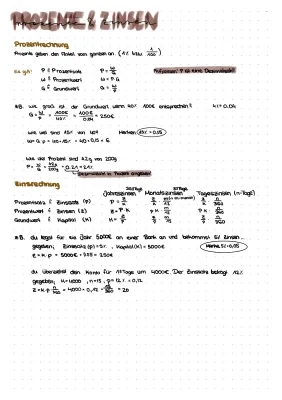 PROZENTE & ZINSEN
Prozentrechnung
Prozente geben den Anteil vom ganzen an (1% bzw. 1/100)
Es gilt: P = Prozentsatz P = W/G Aufpassen: P ist eine Dezimalzahl!
W = Prozentwert W = P·G
G = Grundwert G = W/P
z.B. wie groß ist der Grundwert wenn 40% 100€ entsprechen?
wie viel sind 15% von 40€ Merken: 15% = 0,15
W = G·p = 40·15% = 40·0,15 = 6
wie viel Prozent sind 42g von 200g
P = W/G = 42g/200g = 0,21 = 21%
Dezimalzahl in Prozent angeben
Zinsrechnung
Jahreszinsen Monatszinsen Tageszinsen (n-Tage)
Prozentsatz = Zinssatz (p)
Prozentwert = Zinsen (Z) Z = P·K
Grundwert = Kapital (K)
z.B. du legst für ein Jahr 5000€ an einer Bank an und bekommst 5% Zinsen.
gegeben: Zinssatz (p) = 5%, Kapital (K) = 5000€ Merke 5% = 0,05
Z = K·p = 5000€ · 0,05 = 250€
du überziehst dein Konto für 15 Tage um 4000€. Der Zinssatz beträgt 12%
gegeben: K = 4000, n = 15, p = 12% = 0,12
Z = K·p· n/360 = 4000 · 0,12 · 15/360 = 20